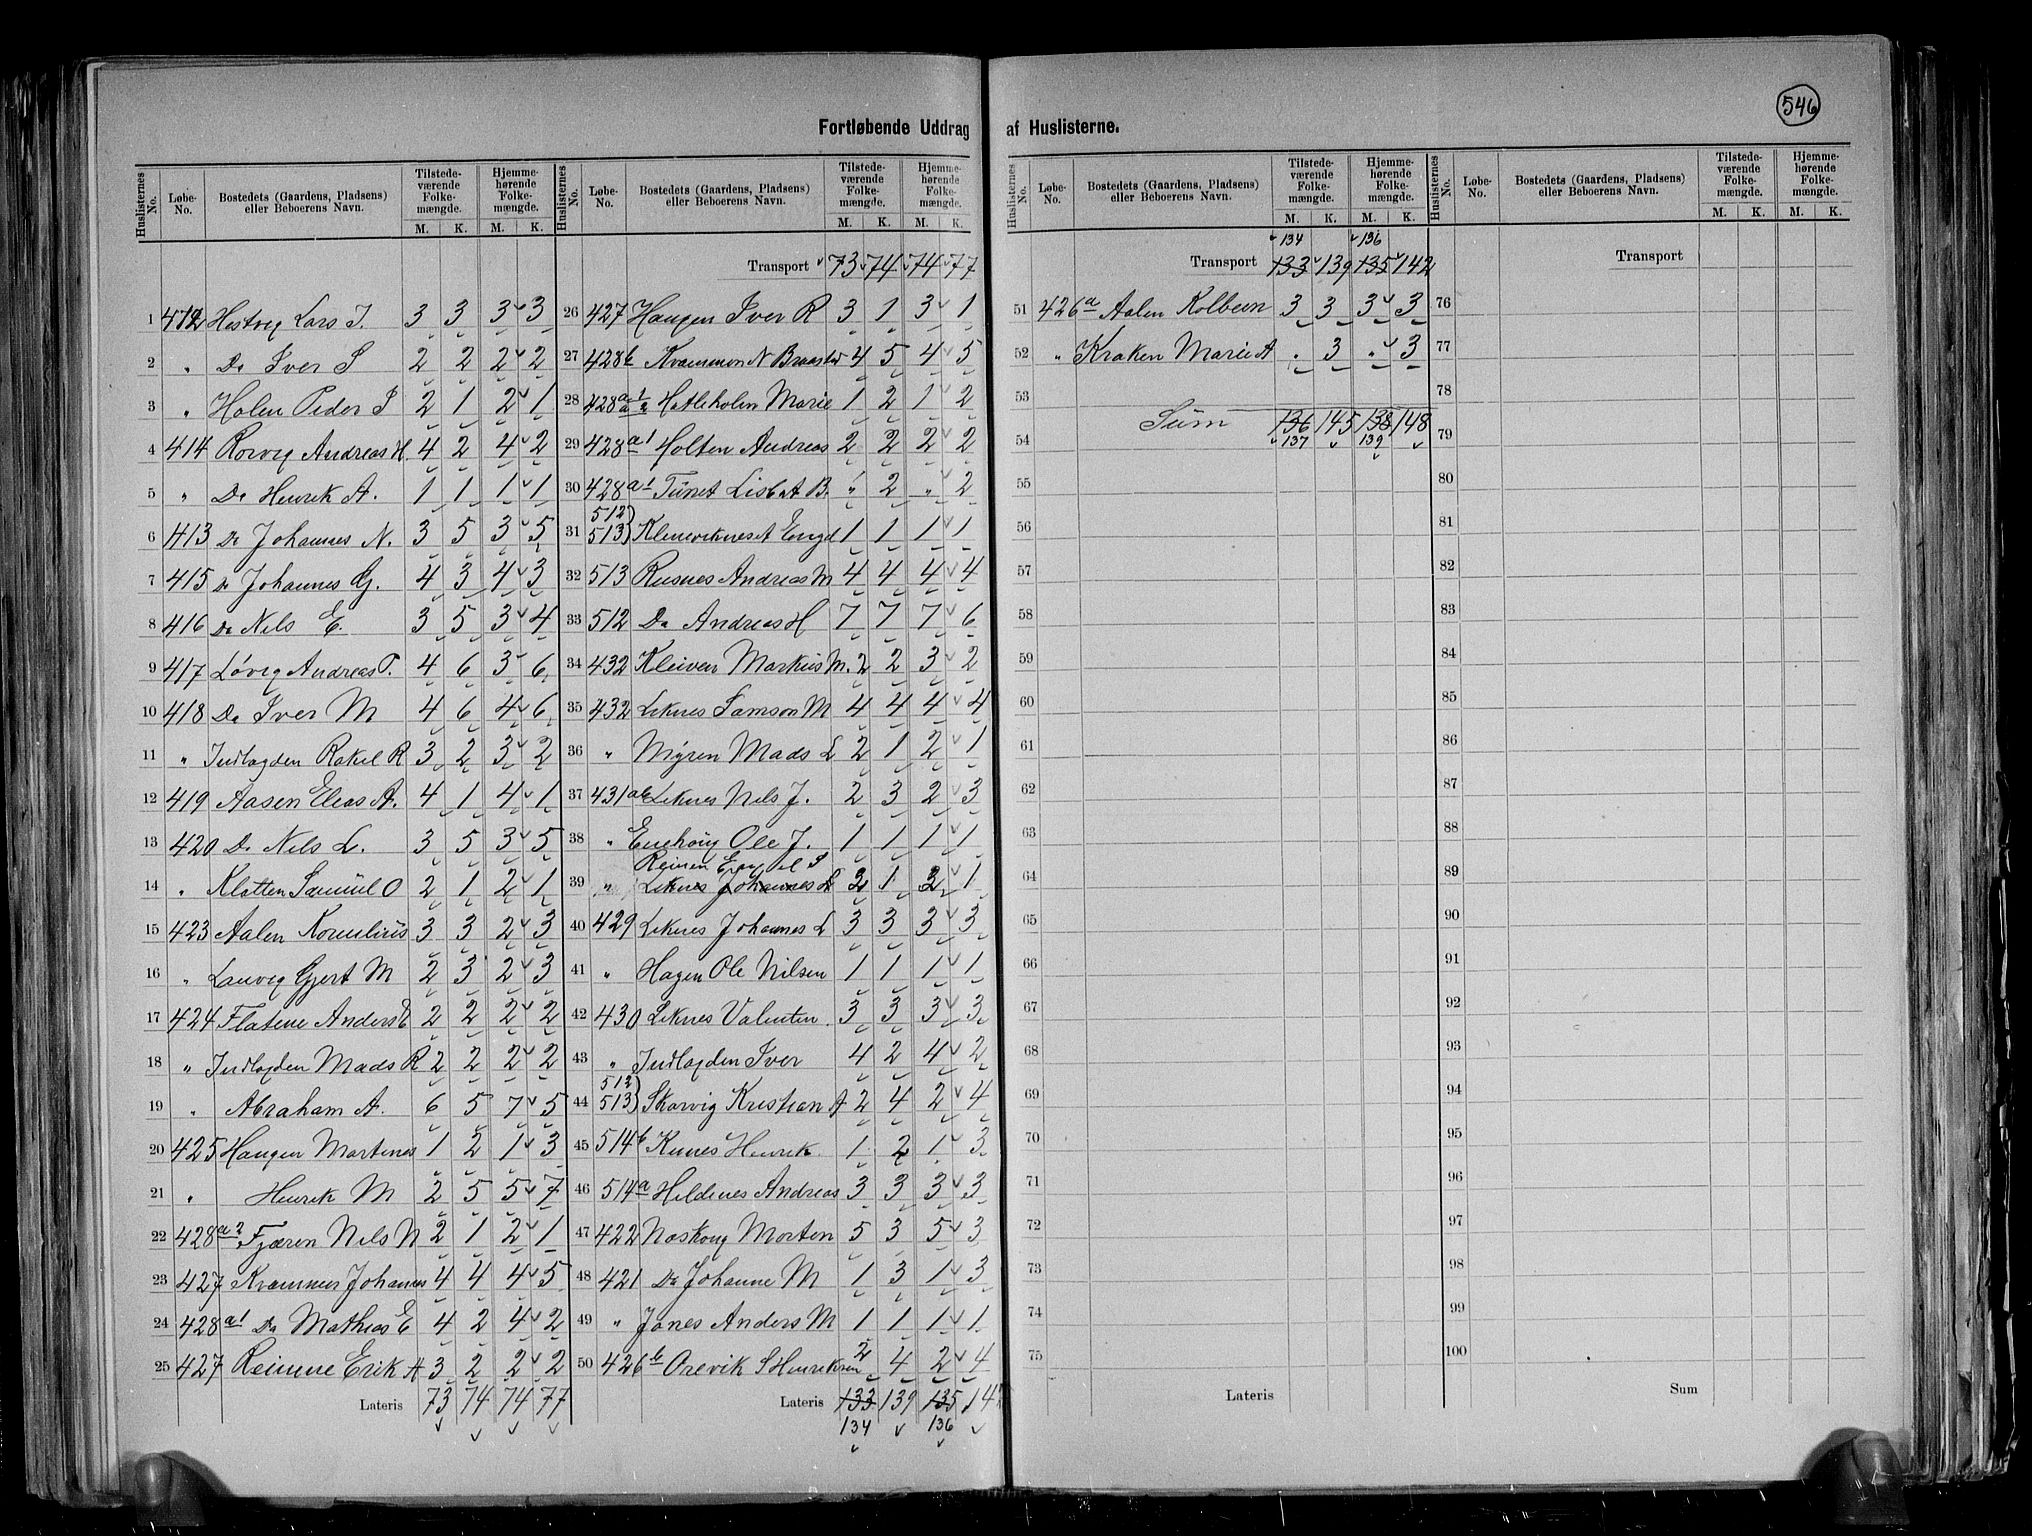 546
Fortløbende Uddrag af Huslisterne.
Huslisternes No. Løbe-No. Bostedets (Gaardens, Pladsens) eller Beboerens Navn. Tilstedeværende Folkemængde. M. K. Hjemmehørende Folkemængde. M. K.
1 412 Hestvig Lars J. 3 3 3 3
2 " Do Iver S 2 2 2 2
3 " Holen Peder J 2 1 2 1
4 414 Rorvig Andreas H. 4 2 4 2
5 " Do Henrik A. 1 1 1 1
6 413 Do Johannes N. 3 5 3 5
7 415 Do Johannes G. 4 3 4 3
8 416 Do Nels E. 3 5 3 4
9 417 Løvig Andreas P. 4 6 3 6
10 418 Do Iver M 4 6 4 6
11 " Indlagden Rakel R 3 2 3 2
12 419 Aasen Elias A. 4 1 4 1
13 420 Do Nils L. 3 5 3 5
14 " Klatten Samuel O 2 1 2 1
15 423 Aalen Kornelius 3 3 2 3
16 " Lauvig Gjert M 2 3 2 3
17 424 Flatene Anders E 2 2 2 2
18 " Indlagden Mads R 2 2 2 2
19 " Abraham A. 6 5 7 5
20 425 Haugen Martenes 1 2 1 3
21 " Henrik M 2 5 5 7
22 428 a2 Fjæren Nils N 2 1 2 1
23 427 Krammer Johannes 4 4 4 5
24 428 a1 Do Mathias E 4 2 4 2
25 427 Reimne Erik A 3 2 2 2
Lateris 73 74 74 77
Huslisternes No. Løbe-No. Bostedets (Gaardens, Pladsens) eller Beboerens Navn. Tilstedeværende Folkemængde. M. K. Hjemmehørende Folkemængde. M. K.
Transport 73 74 74 77
26 427 Haugen Iver R 3 1 3 1
27 428b Krammen N Braaster 4 5 4 5
28 428 Hatleholen Marie 1 2 1 2
29 428 a1 Holten Andreas 2 2 2 2
30 428 a1 Tunet Lisbet B. " 2 " 2
31 512 513 Klenevikneset Engd 1 1 1 1
32 513 Rusnes Andreas M 4 4 4 4
33 512 Do Andreas H 7 7 7 6
34 432 Kleiven Markus M. 2 2 3 2
35 432 Leknes Samson M 4 4 4 4
36 " Myren Mads L 2 1 2 1
37 431 ab Leknes Nils J. 2 3 2 3
38 " Enehoug Ole J. 1 1 1 1
Reinen
39 " Leknes Johannes L 2 1 2 1
40 429 Leknes Johannes L 3 3 3 3
41 " Hagen Ole Nilsen 1 1 1 1
42 430 Leknes Valenten 3 3 3 3
43 " Indlagden Iver 4 2 4 2
44 512 513 Skorvig Kristian A 2 4 2 4
45 514 b Kunes Henrik 1 2 1 3
46 514 a Heldenes Andreas 3 3 3 3
47 422 Naskoug Morten 5 3 5 3
48 421 Do Johanne M 1 3 1 3
49 " Jones Anders M 1 1 1 1
50 426 b Orevik S Henriksen 2 4 2 4
Lateris 133 139 135 142
134 136
Huslisternes No. Løbe-No. Bostedets (Gaardens, Pladsens) eller Beboerens Navn. Tilstedeværende Folkemængde. M. K. Hjemmehørende Folkemængde. M. K.
134 136
Transport 133 139 135 142
51 426 a Aalen Kolbein 3 3 3 3
52 " Kraken Marie A " 3 " 3
53
Sum 136 145 138 148
54 137 139
55
56
57
58
59
60
61
62
63
64
65
66
67
68
69
70
71
72
73
74
75
Lateris
Huslisternes No. Løbe-No. Bostedets (Gaardens, Pladsens) eller Beboerens Navn. Tilstedeværende Folkemængde. M. K. Hjemmehørende Folkemængde. M. K.
Transport
76
77
78
79
80
81
82
83
84
85
86
87
88
89
90
91
92
93
94
95
96
97
98
99
100
Sum